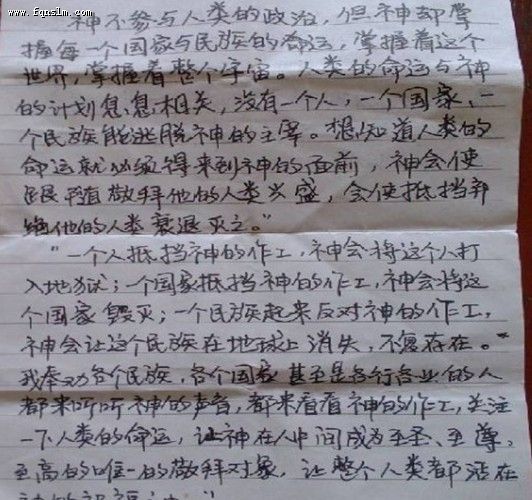 www.Fgnsfm.org
神不参与人类的政治，但神却掌
握每一个国家与民族的命运，掌握着这个
世界，掌握着整个宇宙。人类的命运与神
的计划息息相关，没有一个人，一个国家、一
个民族能逃脱神的主宰。想知道人类的
命运就必须得来到神的面前，神会使
跟随敬拜他的人类兴盛，会使抵挡弃
绝他的人类衰退灭亡。”
“一个人抵挡神的作工，神会将这个人打
入地狱；一个国家抵挡神的作工，神会将这
个国家毁灭；一个民族起来反对神的作工，
神会让这个民族在地球上消失，不复存在。
我奉劝各个民族，各个国家甚至是各行各业的人
都来听听神的声音，都来看看神的作工，关注
一下人类的命运，让神在人中间成为至圣、至尊，
至高的唯一的敬拜对象，让整个人类都活在